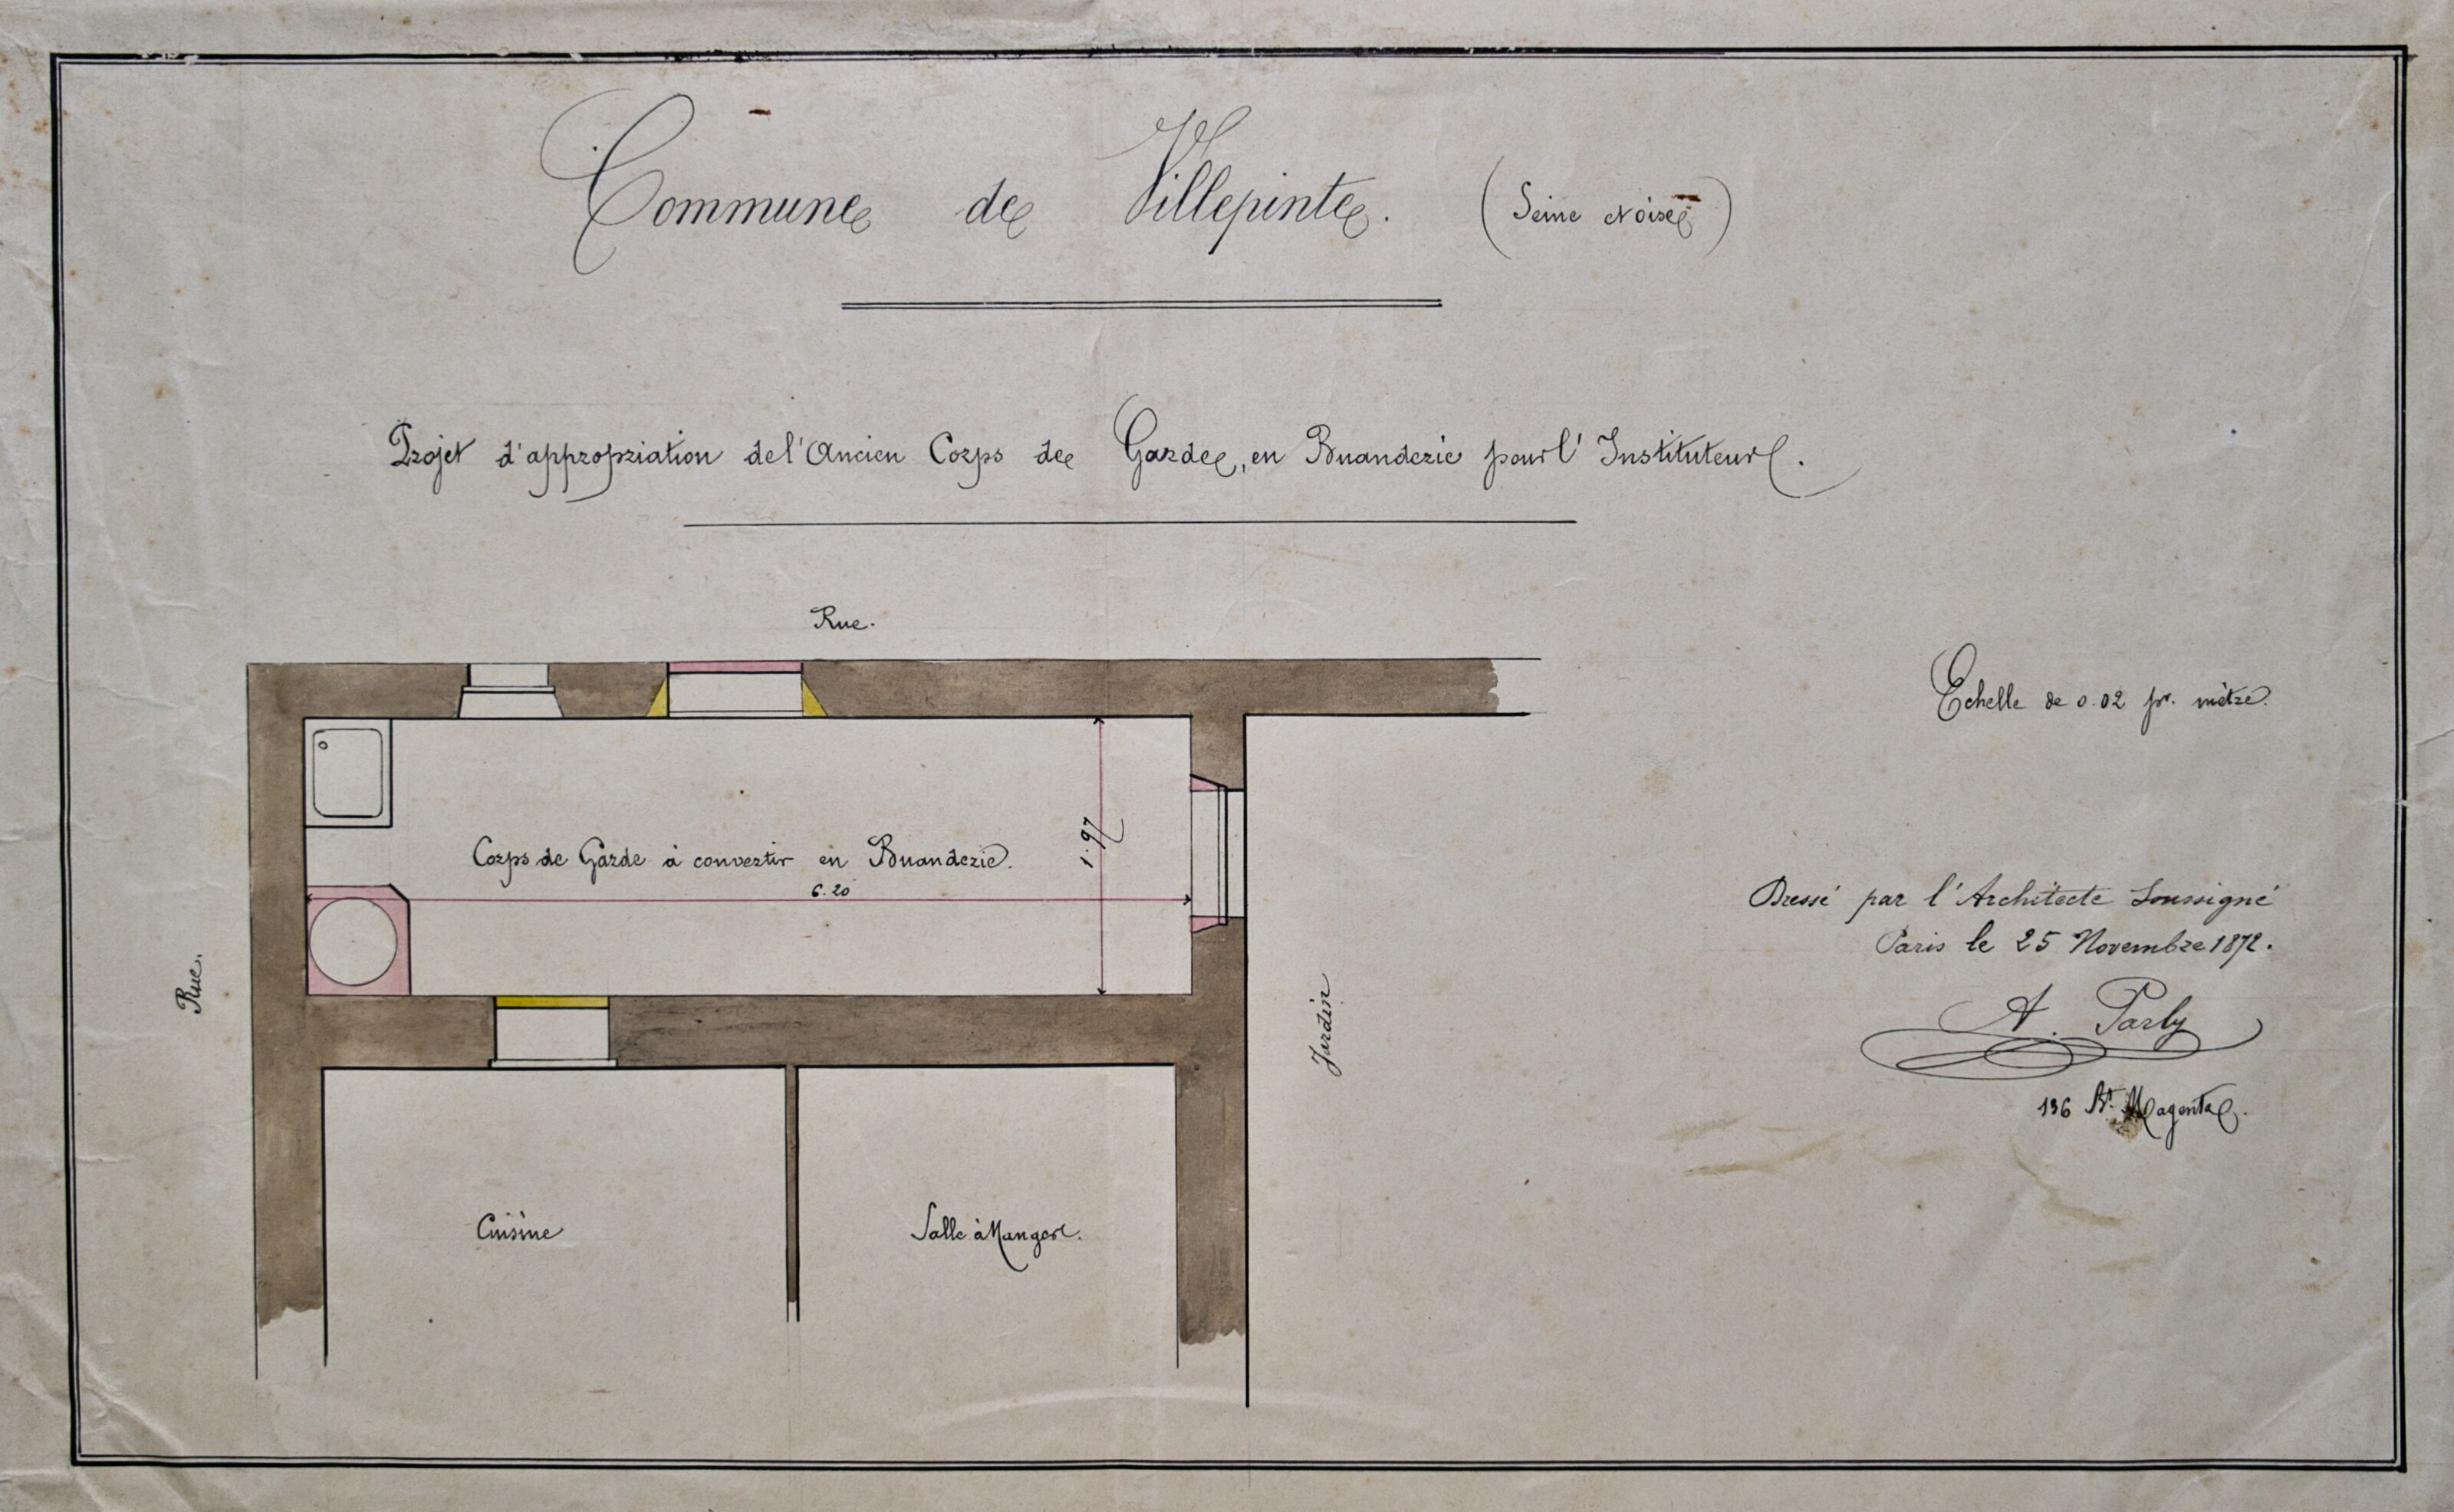 Commune de Villepinte. (Seine et Oise)
Projet d'appropriation de l'Ancien Corps de Garde, en Buanderie pour l'Instituteur.
Rue.
Echelle de 0.02 pr. mètre.
Corps de Garde à convertir en Buanderie.
1.97
6.20
Dressé par l'Architecte Soussigné
Paris le 25 Novembre 1872.
Rue.
Jardin
A. Parly
136 Bt. Magenta.
Cuisine
Salle à Manger.